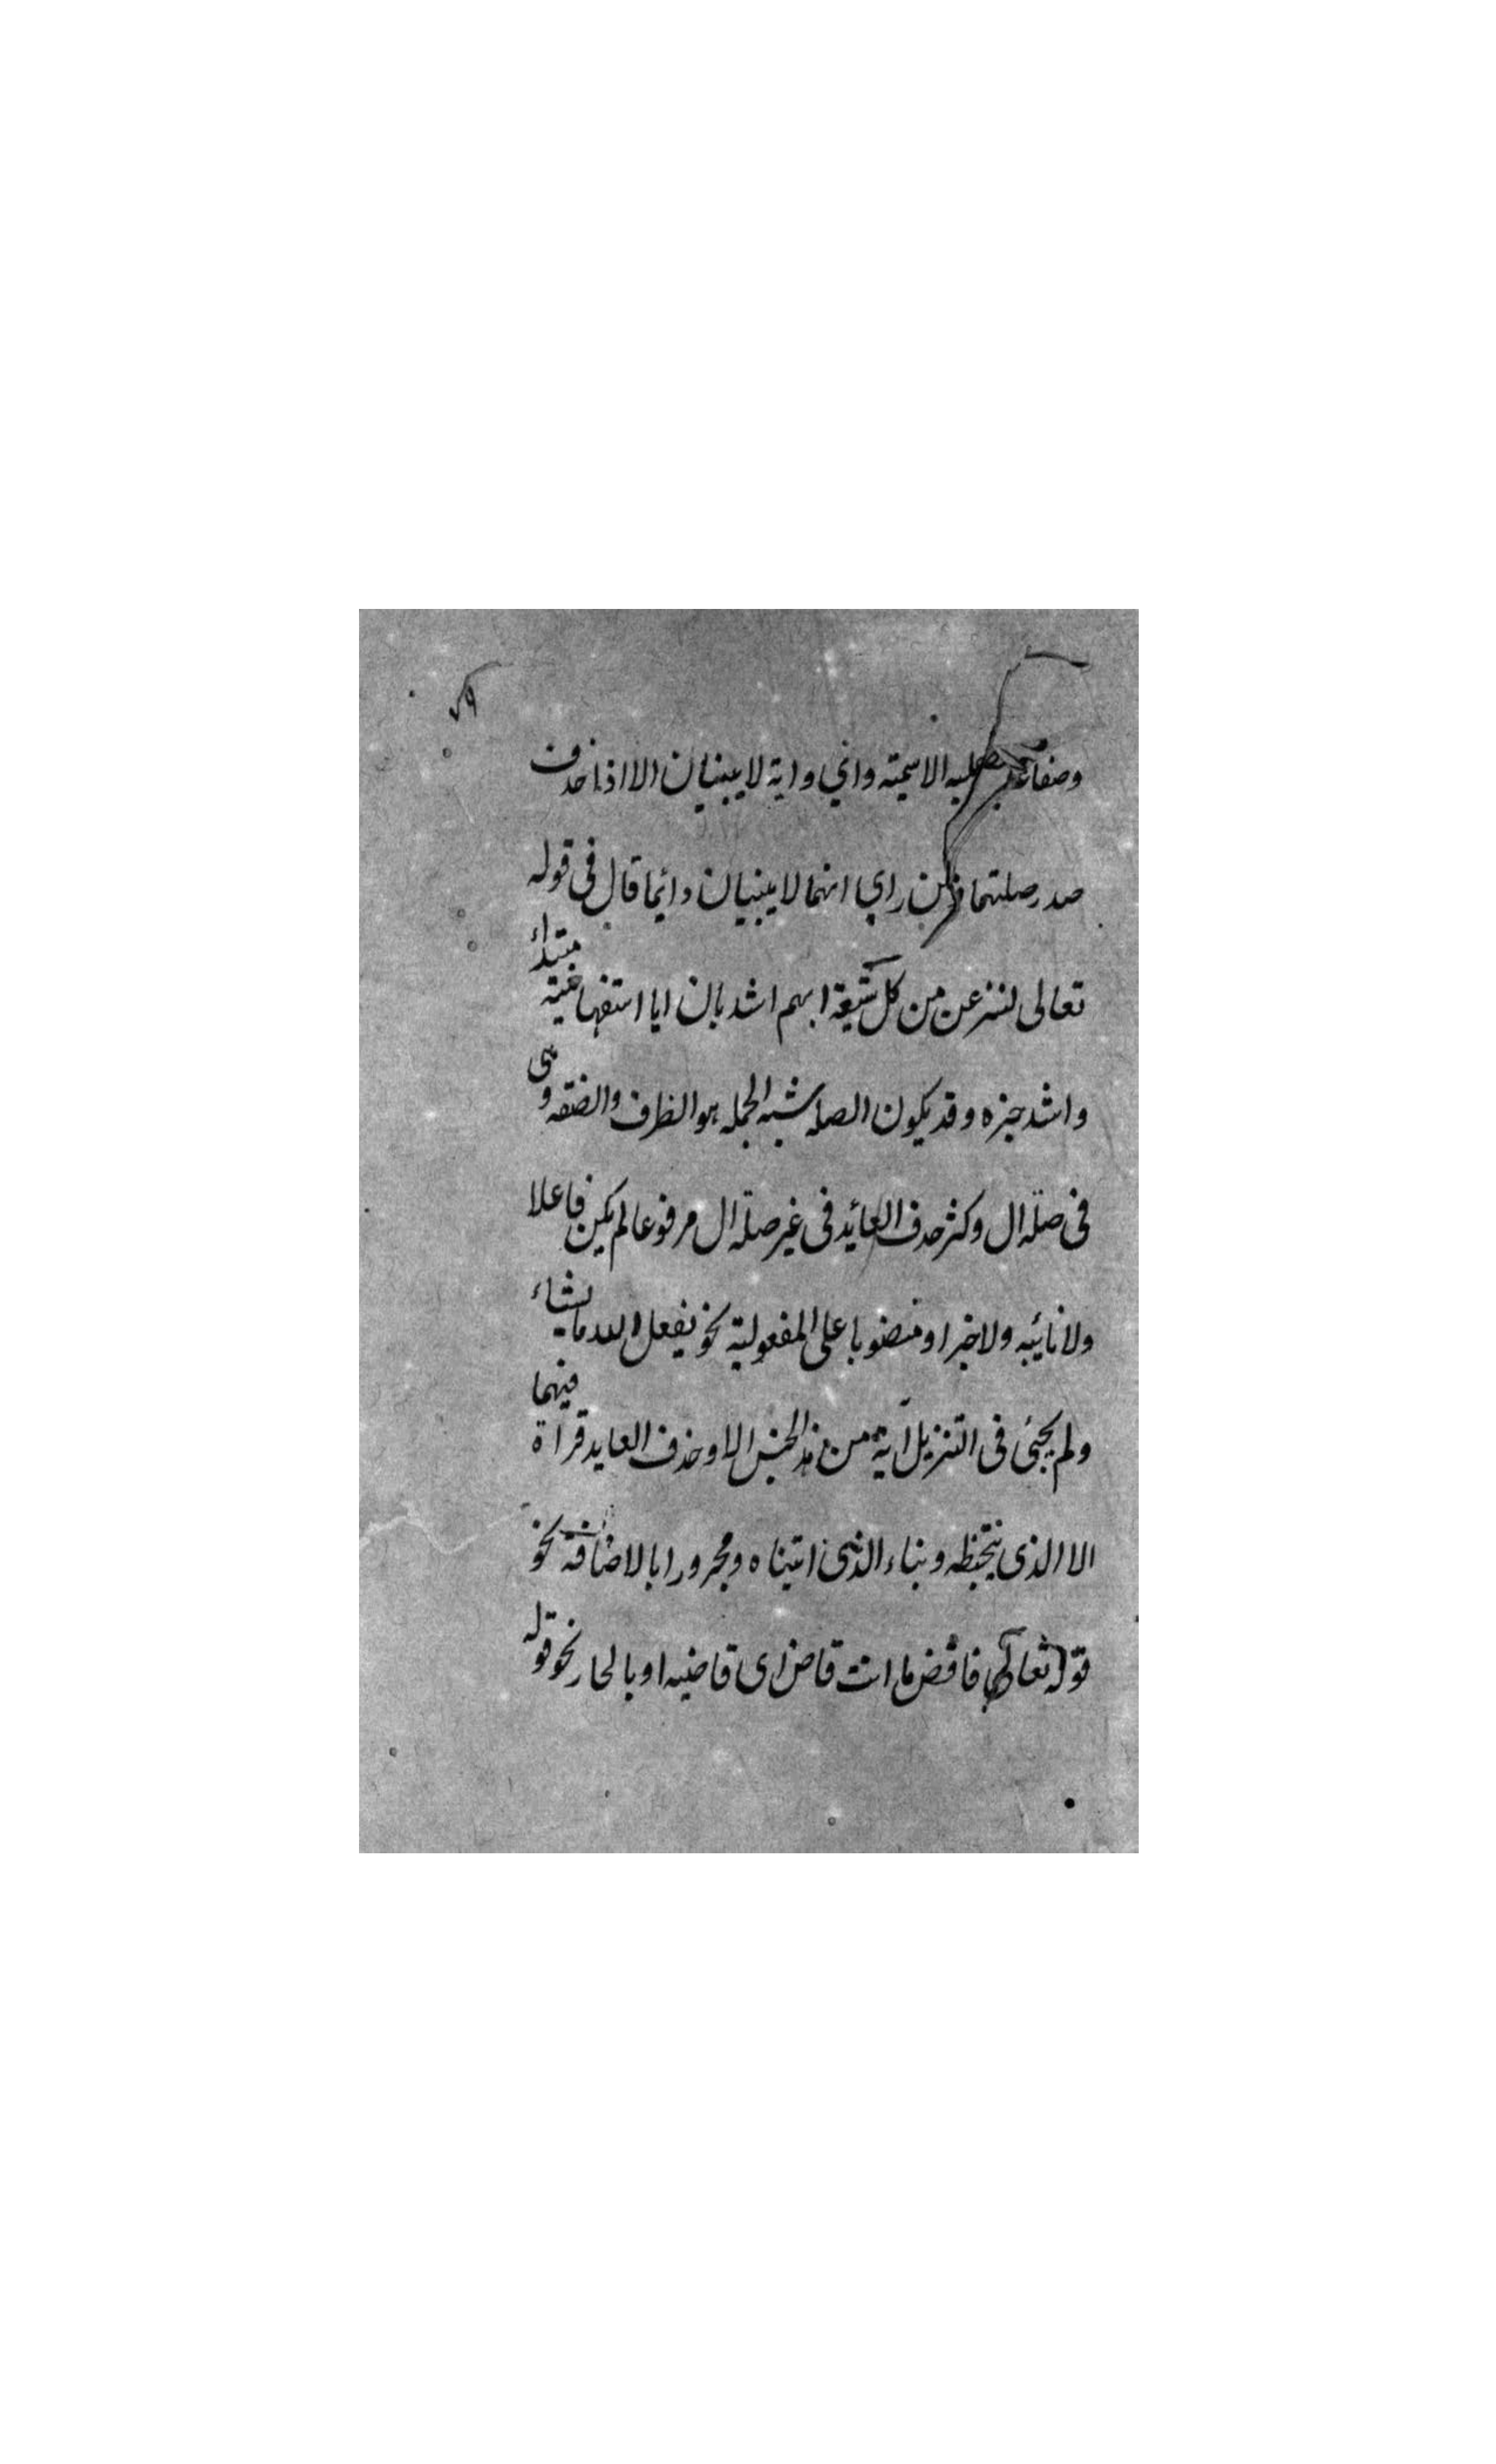 ٧٩
وصفا عليه الاسمية واي واية لا يبنيان الا اذا حذف
صدر صلتهما فمن راي انهما لا يبنيان دائما قال فى قوله
تعالى لننزعن من كل شيعة ايهم اشد بان ايا استفهامية مبتداء
واشد خبره وقد يكون الصله شبه الجمله هو الظرف والصفه وهى
فى صله ال وكثر حذف العائد فى غير صله ال مرفوعا لم يكن فاعلا
ولا نائبه ولا خبرا ومنصوبا على المفعولية نحو يفعل الله ما يشاء
ولم يجئى فى التنزيل آية من هذ الجنس الا وحذف العايد قراة فيهما
الا الذى يتخبطه و بناء الذى اتيناه ومجرورا بالاضافة نحو
قوله تعالى فاقض ما انت قاض اى قاضيه او بالجار نحو قوله